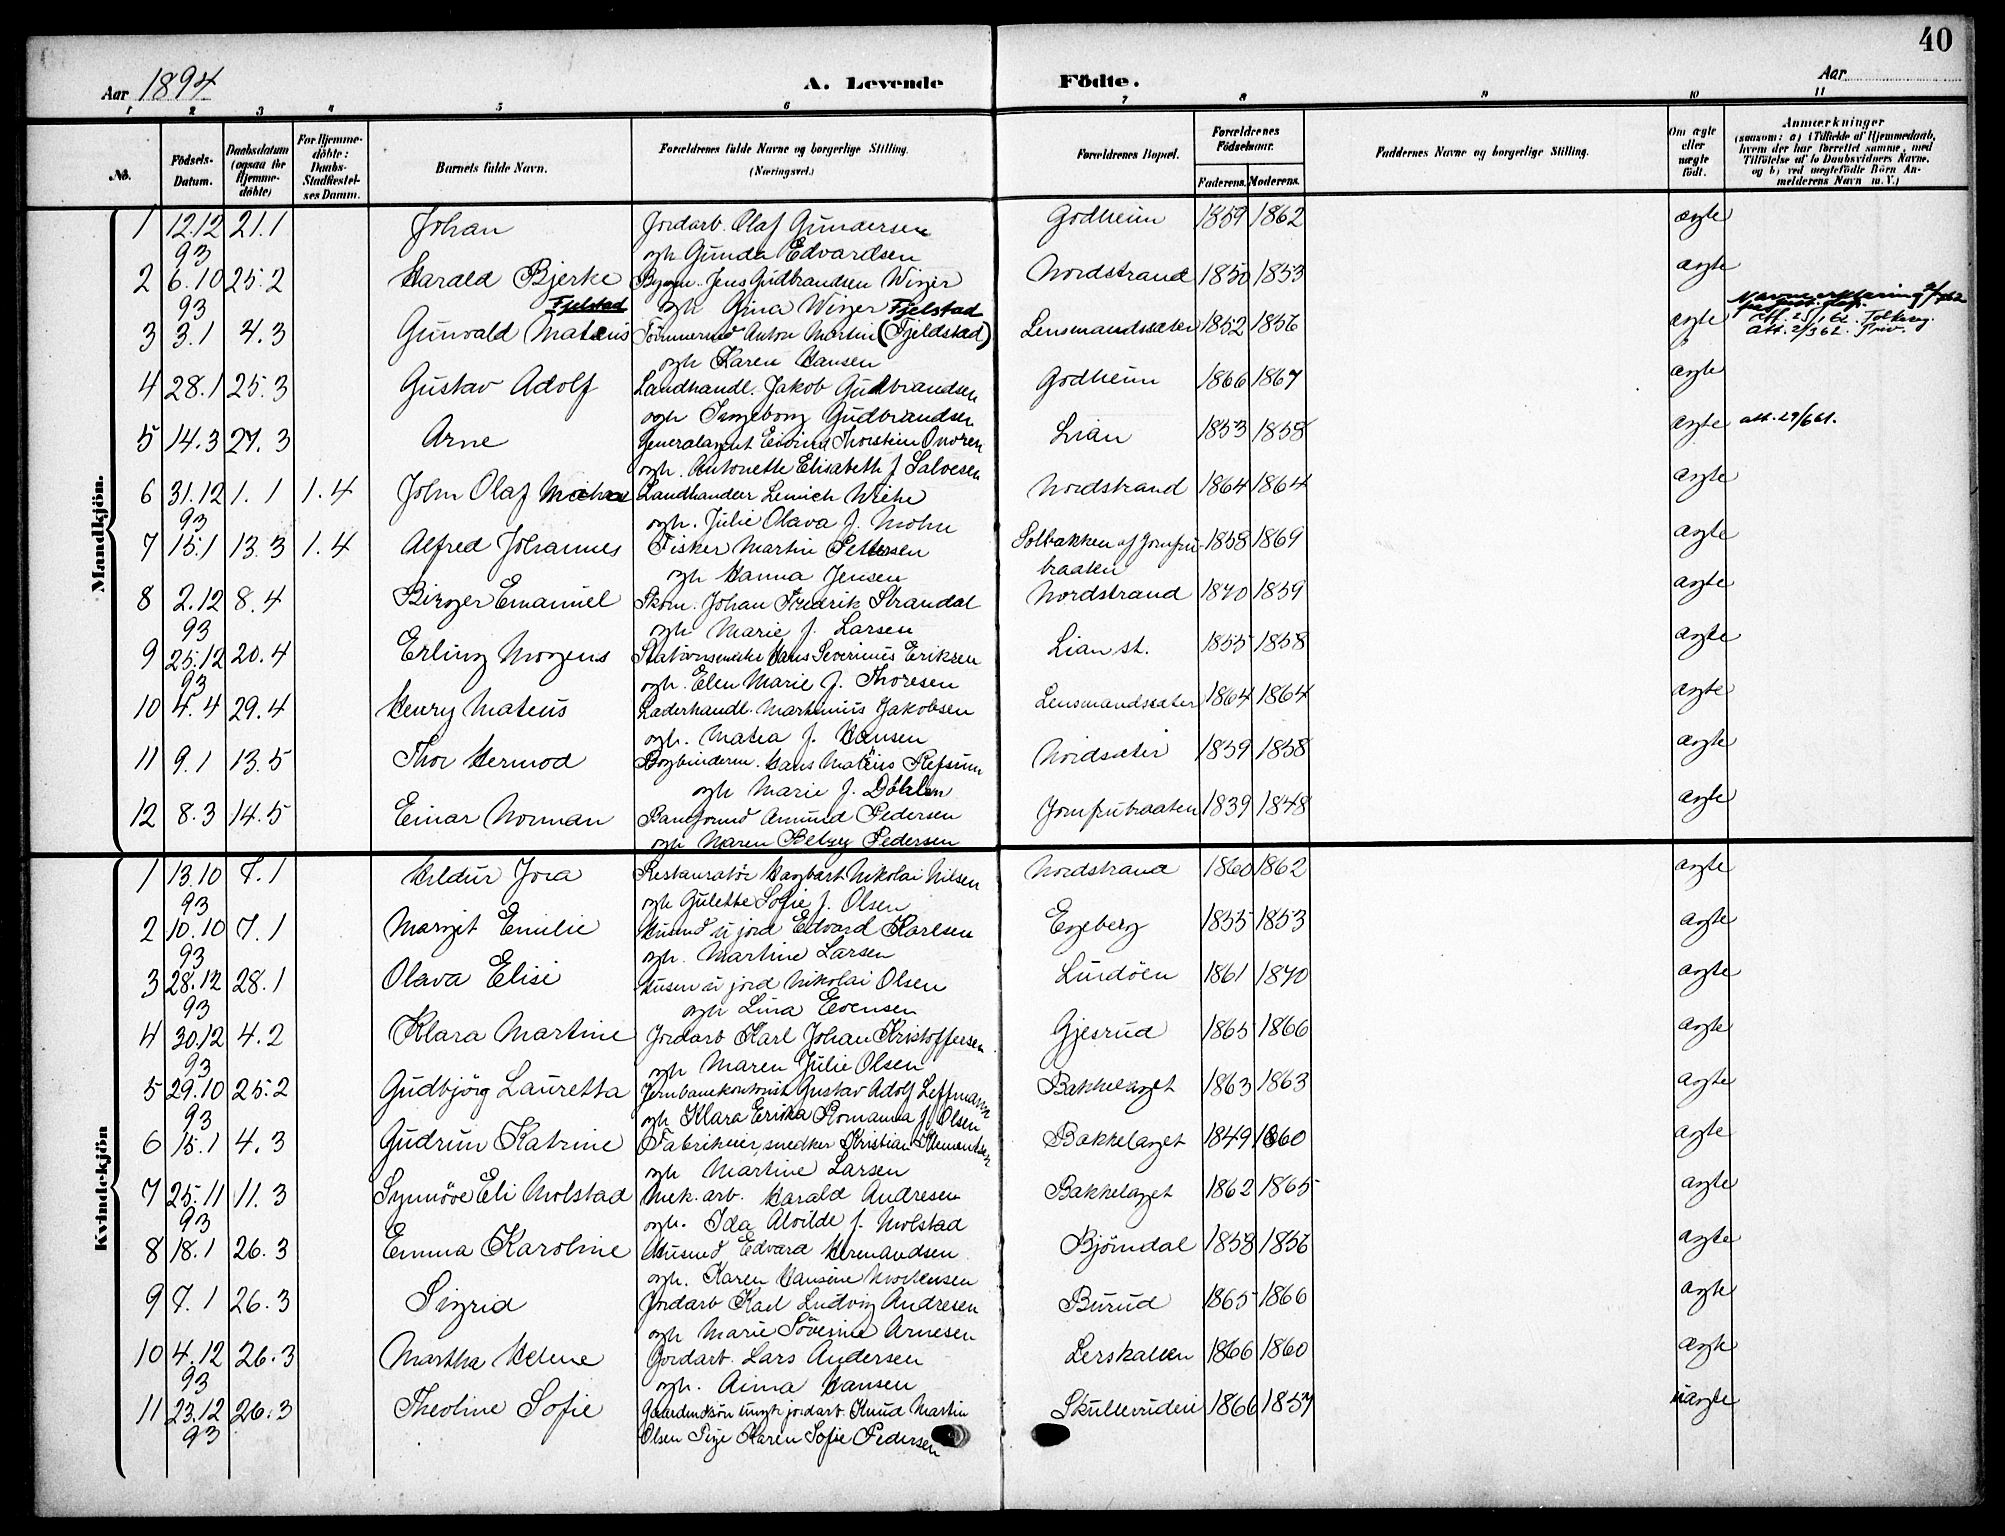 40
Aar 1894 A. Levende Födte. Aar
1 2 3 4 5 6 7 8 9 10 11
No. Födsels-Datum. Daabsdatum (ogsaa for Hjemme-döbte) For Hjemme-döbte: Daabs-Stadfæstel-ses Datum. Barnets fulde Navn. Forældrenes fulde Navne og borgerlige Stilling. (Næringsvei.) Forældrenes Bopæl. Forældrenes Födselsaar. Faderens. Moderens. Faddernes Navne og borgerlige Stilling. Om ægte eller uægte födt. Anmærkninger (saasom: a) i Tilfælde af Hjemmedaab, hvem der har forrettet samme, med Tilföielse af to Daabsvidners Navne, og b) ved uægtefödte Börn An-melderens Navn m. V.)
Mandkjön.
1 12.12 21.1 Johan Jordarb. Olaf Gundersen Godheim 1859 1862 ægte
93 og h. Gunda Edvardsen
2 6.10 25.2 Harald Bjerke Bygm. Jens Gudbrandsen Winjer Nordstrand 1850 1853 ægte
93 Fjelstad og h. Gina Winjer Fjelstad
3 3.1 4.3 Gunvald (Mateus Tömmermd Anton Martin (Fjeldstad) Lensmandssæter 1852 1856 ægte Navneerklæring
og h. Karen Hansen
4 28.1 25.3 Gustav Adolf Landhandl. Jakob Gudbrandsen Godheim 1866 1867 ægte
og h. Ingeborg Gudbrandsen
5 14.3 27.3 Arne Generalagent Eivind Thorstein Onoren Lian 1853 1858 ægte att. 29/6 61.
og h. Antonette Elisabeth f. Salvesen
6 31.12 1.1 1.4 John Olaf Landhandler Lemich Wiehe Nordstrand 1864 1864 ægte
93 og h. Julie Olava f. Mohn
7 15.1 13.3 1.4 Alfred Johannes Fisker Martin Pettersen Solbakken af Jomfru- 1858 1869 ægte
og h. Hanna Jensen braaten
8 2.12 8.4 Birger Emanuel Skom. Johan Fredrik Strandal Nordstrand 1870 1859 ægte
93 og h. Marie f. Larsen
9 25.12 20.4 Erling Mogens Stationsmester Hans Severinus Eriksen Lian st. 1855 1858 ægte
93 og h. Elen Marie f. Thoresen
10 4.4 29.4 Henry Mateus Læderhandl. Martinius Jakobsen Lensmandssæter 1864 1864 ægte
og h. Matea f. Hansen
11 9.1 13.5 Thor Hermod Bogbinderm. Hans Matëus Refsum Nordsæter 1859 1858 ægte
og h. Marie f. Döhlen
12 8.3 14.5 Einar Norman Banformd Amund Pedersen Jomfrubraaten 1839 1848 ægte
og h. Maren Betzy Pedersen
Kvindekjön
1 13.10 7.1 Hildur Jora Restauratör Hagbart Nikolai Nilsen Nordstrand 1860 1862 ægte
93 og h. Gulette Sofie f. Olsen
2 10.10 7.1 Margit Emilie Husmd u jord Edvard Karlsen Egeberg 1855 1853 ægte
93 og h. Martine Larsen
3 28.12 28.1 Olava Elise Husm u jord Nikolai Olsen Lusdöen 1861 1870 ægte
93 og h. Lina Evensen
4 30.12 4.2 Klara Martine Jordarb Karl Johan Kristoffersen Gjesrud 1865 1866 ægte
93 og h. Maren Julie Olsen
5 29.10 25.2 Gudbjörg Lauretta Jernbanekontorist Gustav Adolf Leffmann Bakkelaget 1863 1863 ægte
93 og h. Klara Erika Romanna f. Olsen
6 15.1 4.3 Gudrun Katrine Fabrikeier, snedker Kristian Klementsen Bakkelaget 1849 1860 ægte
og h. Martine Larsen
7 25.11 11.3 Synnöve Eli Molstad Mek. arb. Harald Andresen Bakkelaget 1862 1865 ægte
93 og h. Ida Alvilde f. Molstad
8 18.1 26.3 Emma Karoline Husmd Edvard Hermandsen Björndal 1858 1856 ægte
og h. Karen Hansine Mortensen
9 7.1 26.3 Sigrid Jordarb Karl Ludvig Andresen Burud 1865 1866 ægte
og h. Marie Söverine Arnesen
10 4.12 26.3 Martha Helene Jordarb. Lars Andersen Lerskallen 1866 1860 ægte
93 og h. Anna Hansen
11 23.12 26.3 Theoline Sofie Gaardmdsön ungk jordarb. Knud Martin Skullerudeie 1866 1857 uægte
93 Olsen Pige Karen Sofie Pedersen